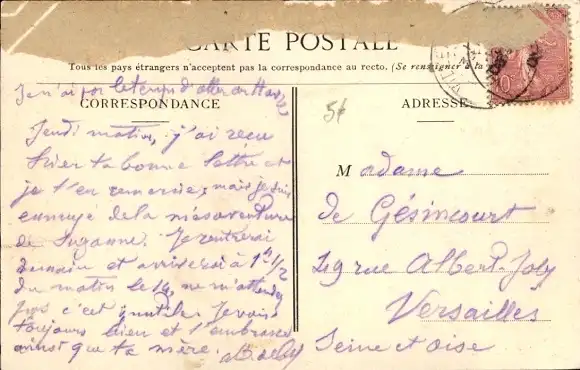 CARTE POSTALE
Tous les pays étrangers n'acceptent pas la correspondance au recto. (Se renseigner à la
Je n'ai pas le temps d'aller au Havre
CORRESPONDANCE
ADRESSE
Jeudi matin, j'ai reçu
hier ta bonne lettre et
je t'en remercie; mais je suis
ennuyé de la mésaventure
de Suzanne. Je rentrerai
demain et arriverai à 1h 1/2
du matin le 14, ne m'attendez
pas c'est inutile. Je vais
toujours bien et t'embrasse
ainsi que ta mère.
Madame
de Gésincourt
49 rue Albert-Joly
Versailles
Seine et Oise